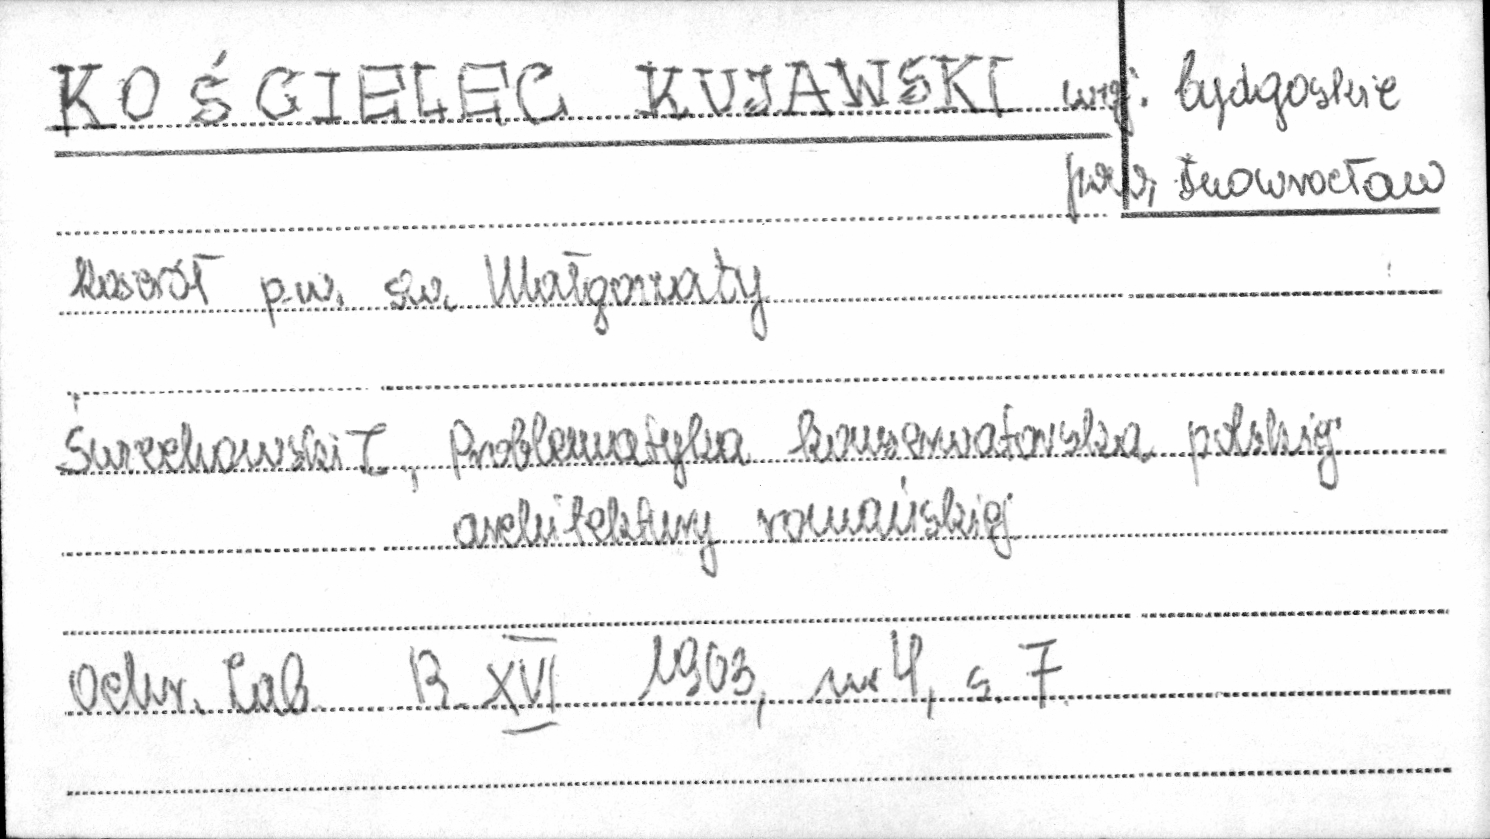 KOŚCIELEC KUJAWSKI woj. bydgoskie
pow. Inowrocław
kościół p.w. św. Małgorzaty
Świechowski Z., Problematyka konserwatorska polskiej
architektury romańskiej
Ochr. Zab. R. XVI 1963, nr 4, s. 7.